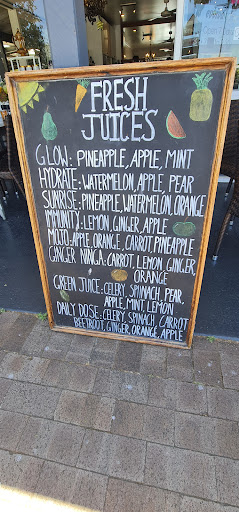 FRESH
JUICES
GLOW: PINEAPPLE, APPLE, MINT
HYDRATE: WATERMELON, APPLE, PEAR
SUNRISE: PINEAPPLE, WATERMELON, ORANGE
IMMUNITY: LEMON, GINGER, APPLE
MOJO: APPLE, ORANGE, CARROT, PINEAPPLE
GINGER NINGA: CARROT, LEMON, GINGER,
ORANGE
GREEN JUICE: CELERY, SPINACH, PEAR,
APPLE, MINT, LEMON
DAILY DOSE: CELERY, SPINACH, CARROT
BEETROOT, GINGER, ORANGE, APPLE